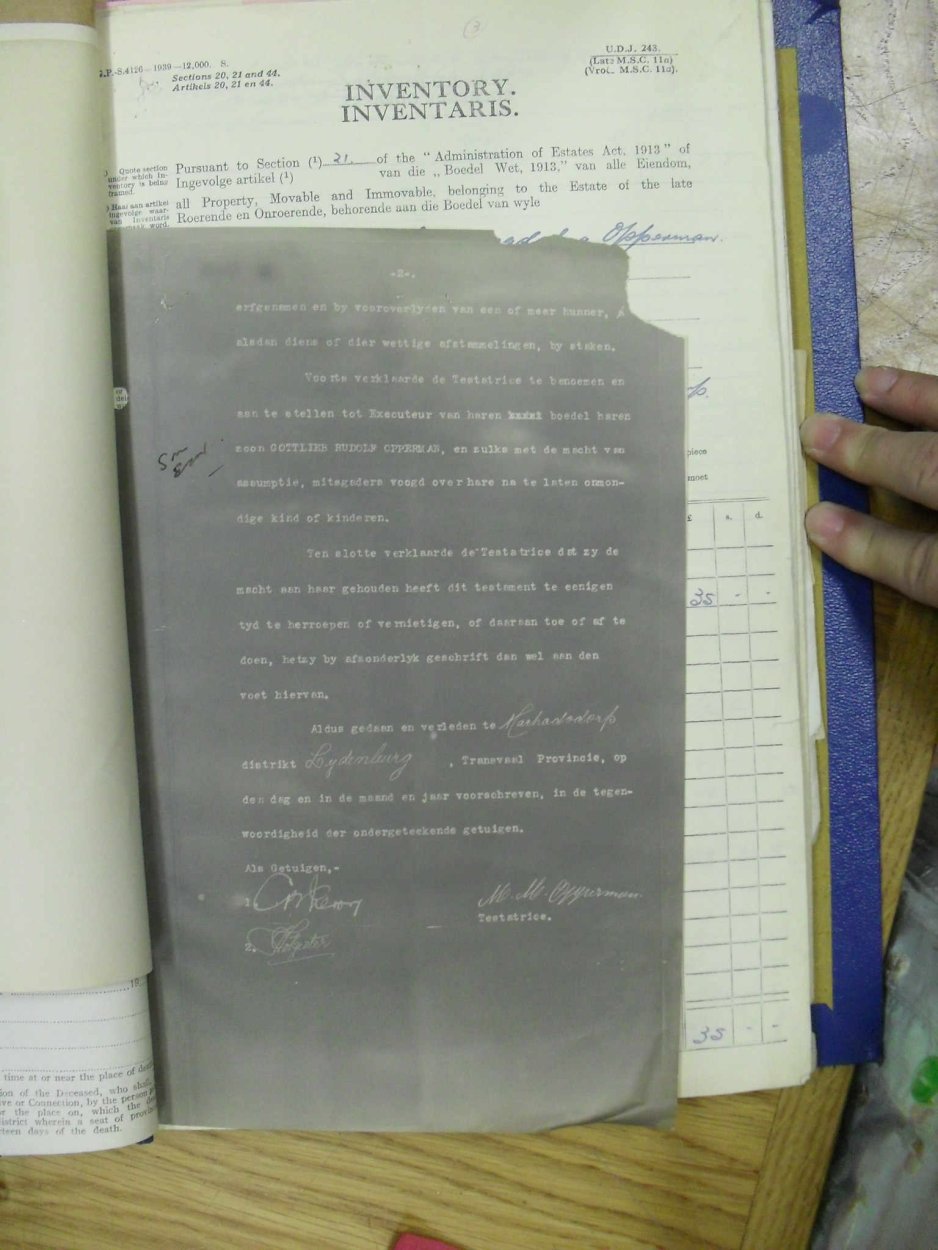 G.P.-S.4126—1939—12,000. S.
Sections 20, 21 and 44.
Artikels 20, 21 en 44.
U.D.J. 243.
(Late M.S.C. 11a)
(Vroe. M.S.C. 11a).
INVENTORY.
INVENTARIS.
Quote section
under which In-
ventory is being
framed.
Haal aan artikel
ingevolge waar-
van Inventaris
word.
Pursuant to Section (¹) 21. of the “ Administration of Estates Act, 1913 ” of
Ingevolge artikel (¹) van die „ Boedel Wet, 1913,” van alle Eiendom,
all Property, Movable and Immovable, belonging to the Estate of the late
Roerende en Onroerende, behorende aan die Boedel van wyle
Opperman.
-2-.
erfgenamen en by vooroverlyden van een of meer hunner,
alsdan diens of dier wettige afstammelingen, by staken.
Voorts verklaarde de Testatrice te benoemen en
aan te stellen tot Executeur van haren boedel haren
zoon GOTTLIEB RUDOLF OPPERMAN, en zulks met de macht van
assumptie, mitsgaders voogd over hare na te laten onmon-
dige kind of kinderen.
Ten slotte verklaarde de Testatrice dat zy de
macht aan haar gehouden heeft dit testament te eenigen
tyd te herroepen of vernietigen, of daaraan toe of af te
doen, hetzy by afzonderlyk geschrift dan wel aan den
voet hiervan.
Aldus gedaan en verleden te Machadodorp
distrikt Lydenburg , Transvaal Provincie, op
den dag en in de maand en jaar voorschreven, in de tegen-
woordigheid der ondergeteekende getuigen.
Als Getuigen,-
1
M. M. Opperman
Testatrice.
2.
piece
moet
£ s. d.
35 - -
35 - -
19
time at or near the place of death
ion of the Deceased, who shall
ve or Connection, by the person
or the place on, which the
district wherein a seat of
teen days of the death.